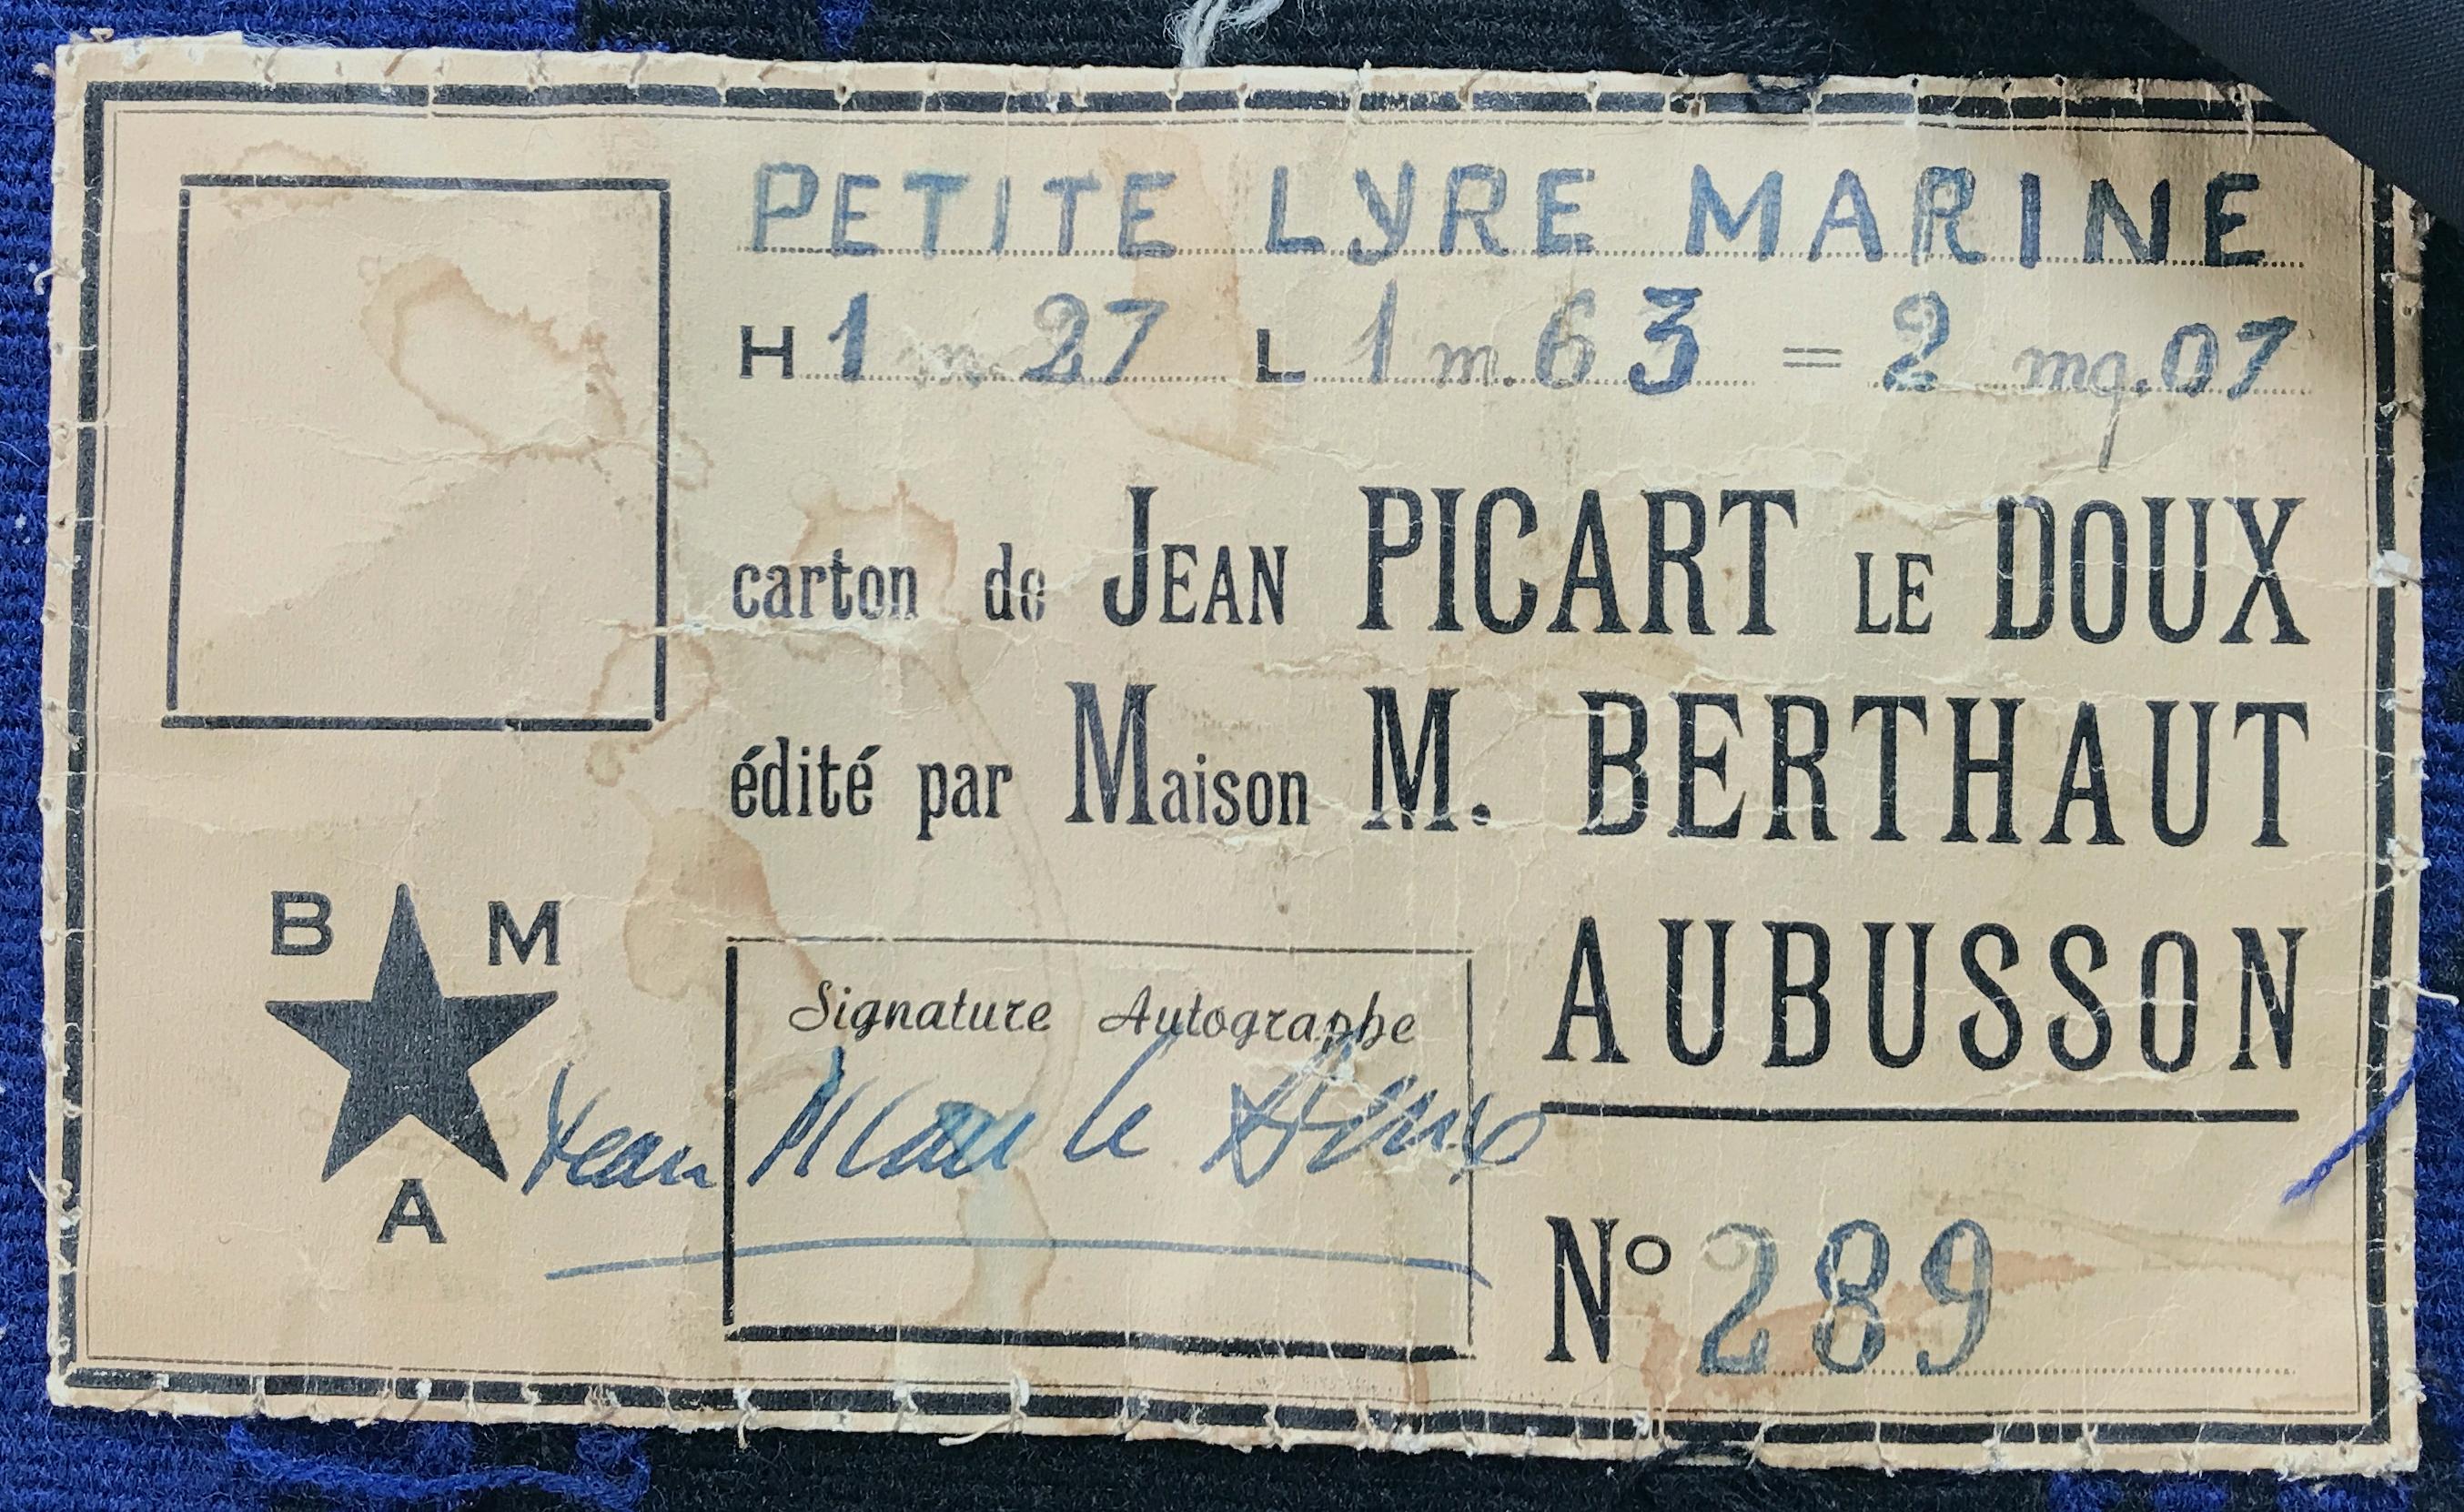 PETITE LYRE MARINE
H 1 m. 27 L 1 m. 63 = 2 mq. 07
carton de JEAN PICART LE DOUX
édité par Maison M. BERTHAUT
AUBUSSON
B M
A
Signature Autographe
Jean Picart le Doux
N° 289